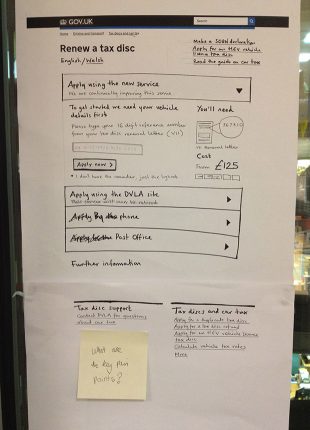 GOV.UK
Search
Home
Renew a tax disc
English/Welsh
Make a SORN declaration
Apply for an HGV vehicle
Read the guide on car tax
Apply using the new service
We are continually improving this service
To get started we need your vehicle
details first
Please type your 16 digit reference number
from your tax disc renewal letter (V11)
Apply now >
I don't have the reminder, just the logbook
You'll need
V11 Renewal letter
Cost
From £125
Apply using the DVLA site
This service will soon be retired
Apply by phone
Post Office
Further information
Tax disc support
Contact DVLA for questions
about car tax
Tax discs and car tax
Apply for a duplicate tax disc
Apply for a tax disc refund
Apply for an HGV vehicle licence
tax disc
Calculate vehicle tax rates
More
What are
the key pain
points?